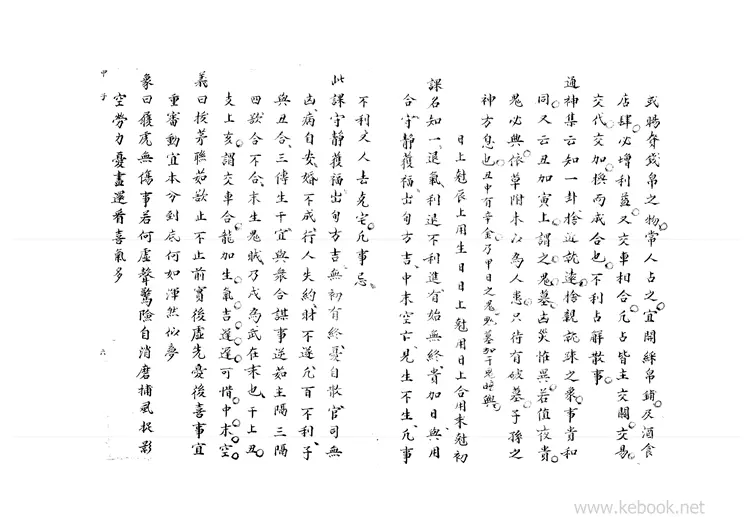 或賜脊錢帛之物常人占之宜開綵帛鋪及酒食
店肆必增利益又交車相合凡占皆主交關交易
交代交加換而成合也不利占解散事
通神集云知一卦捨近就遠捨親就疎之衆事貴和
同又云丑加寅上謂之鬼墓凶災惟異若值夜貴
鬼必與依草附木以為人患只待有破墓子孫之
神方息也丑中有辛金乃甲日之鬼
日上尅辰上用生日日上尅用日上合用末尅初
課名知一退氣利退不利進有始無終貴加日與用
合守靜獲福出旬方吉中末空亡見生不生凡事
不利丈人去克宅凡事忌
此課守靜獲福出旬方吉無初有終憂自散官司無
凶病自安婚不成行人失約財不遂凡百不利子
與丑合三傳生干宜與衆合謀事逆茹主隔三隔
四欲合不合末生鬼賊乃戌為武在末也干上丑
支上亥謂交車合龍加生氣吉遲遲可惜中末空
義曰拔茅聯茹欲止不止前實後虛先憂後喜事宜
重審動宜本分到底何如渾然似夢
象曰履虎無傷事若何虛聲驚險自消磨捕風捉影
空勞力憂盡還看喜氣多
甲子
六
www.kebook.net